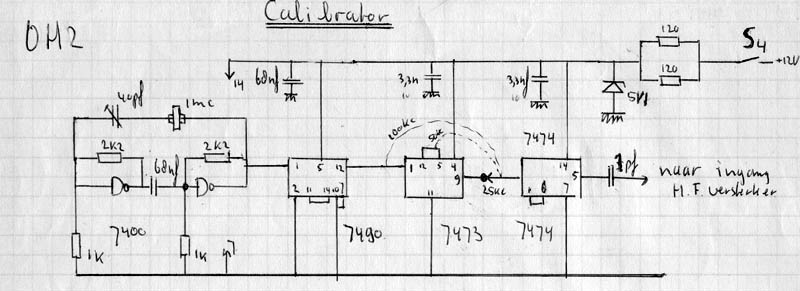 Calibrator
OH2
120
120
S4
+12V
5V1
14
68nf
3,3n
3,3nf
40pf
1mc
2K2
68nf
2K2
100Kc
50Kc
7474
1 5 12
2 11 14 10 7
1 12 5 4
9
11
25Kc
14
5
1 6 7
1pf
naar ingang
H.F. versterker
1K
7400
1K
7
7490
7473
7474